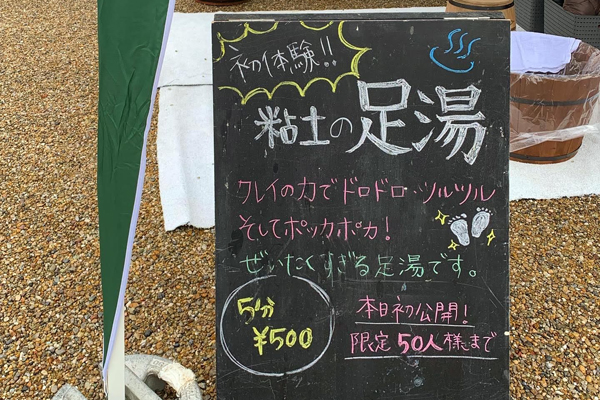 初体験!!
粘土の足湯
クレイの力でドロドロ・ツルツル
そしてポッカポカ!
ぜいたくすぎる足湯です。
5分
¥500
本日初公開!
限定50人様まで